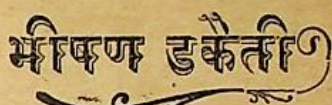 भीषण डकैती